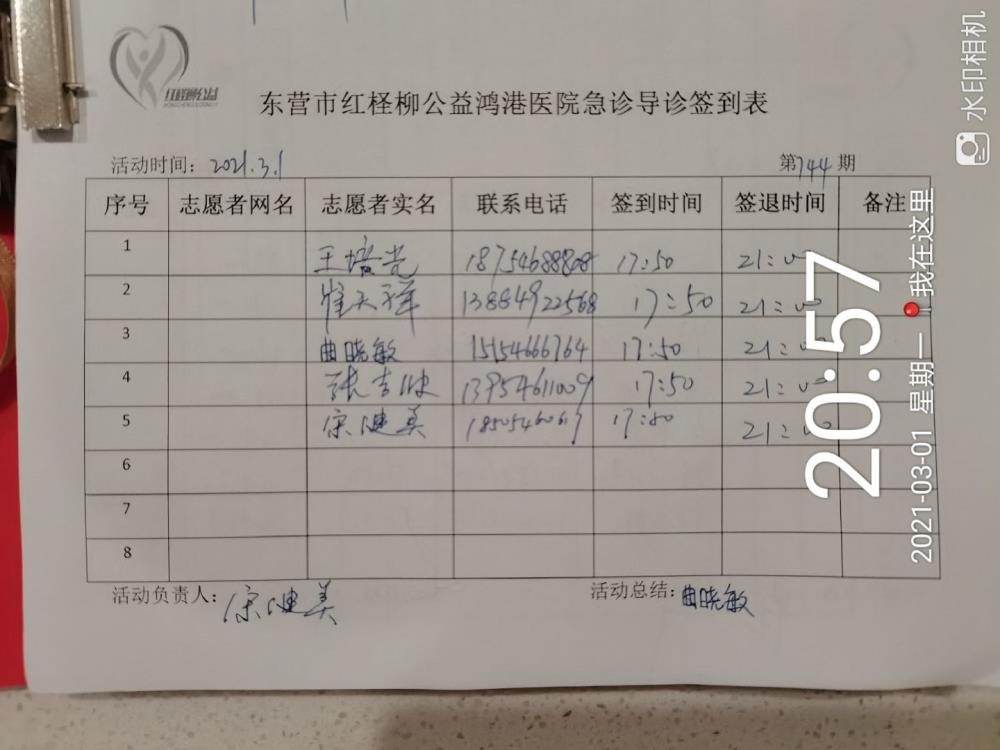 红柽柳公益
东营市红柽柳公益鸿港医院急诊导诊签到表
活动时间：2021.3.1 第744期
序号 志愿者网名 志愿者实名 联系电话 签到时间 签退时间 备注
1 王培光 18754688808 17:50 21:00
2 崔天祥 13884922568 17:50 21:00
3 曲晓敏 15154666764 17:50 21:00
4 张吉 13954611009 17:50 21:00
5 宋健美 17:50 21:00
6
7
8
活动负责人：宋健美 活动总结：曲晓敏
水印相机
20:57
2021-03-01 星期一 我在这里